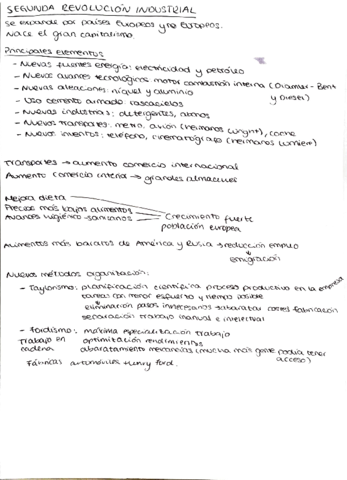 SEGUNDA REVOLUCIÓN INDUSTRIAL
Se expande por países europeos y no europeos.
Nace el gran capitalismo.
Principales elementos
- Nuevas fuentes energía: electricidad y petróleo
- Nuevos avances tecnológicos motor combustión interna (Diamler-Bent y Diesel)
- Nuevas aleaciones: níquel y aluminio
- Uso cemento armado rascacielos
- Nuevas industrias: detergentes, abonos
- Nuevos transportes: metro, avión (hermanos Wright), coche
- Nuevos inventos: teléfono, cinematógrafo (hermanos Lumiere)
Transportes → aumento comercio internacional
Aumento comercio interno → grandes almacenes
Mejora dieta
Precios más bajos alimentos
Avances higiénico-sanitarios
Crecimiento fuerte
población europea
Alimentos más baratos de América y Rusia → reducción empleo
emigración
Nuevos métodos organización:
- Taylorismo: planificación científica proceso productivo en la empresa
tareas con menor esfuerzo y tiempo posible
eliminación pasos innecesarios → abaratar costes fabricación
separación trabajo manual e intelectual
- Fordismo: máxima especialización trabajo
trabajo en
cadena
optimización rendimientos
abaratamiento mercancías (mucha más gente podía tener
acceso)
Fábricas automóviles Henry Ford.